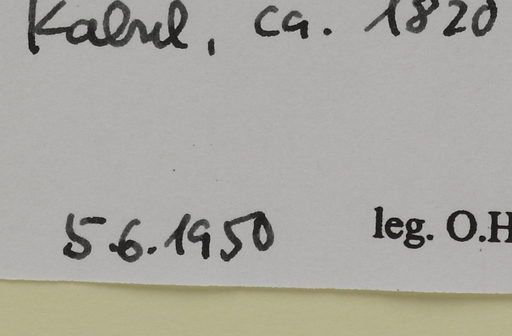 Kabul, ca. 1820
5.6.1950 leg. O.H